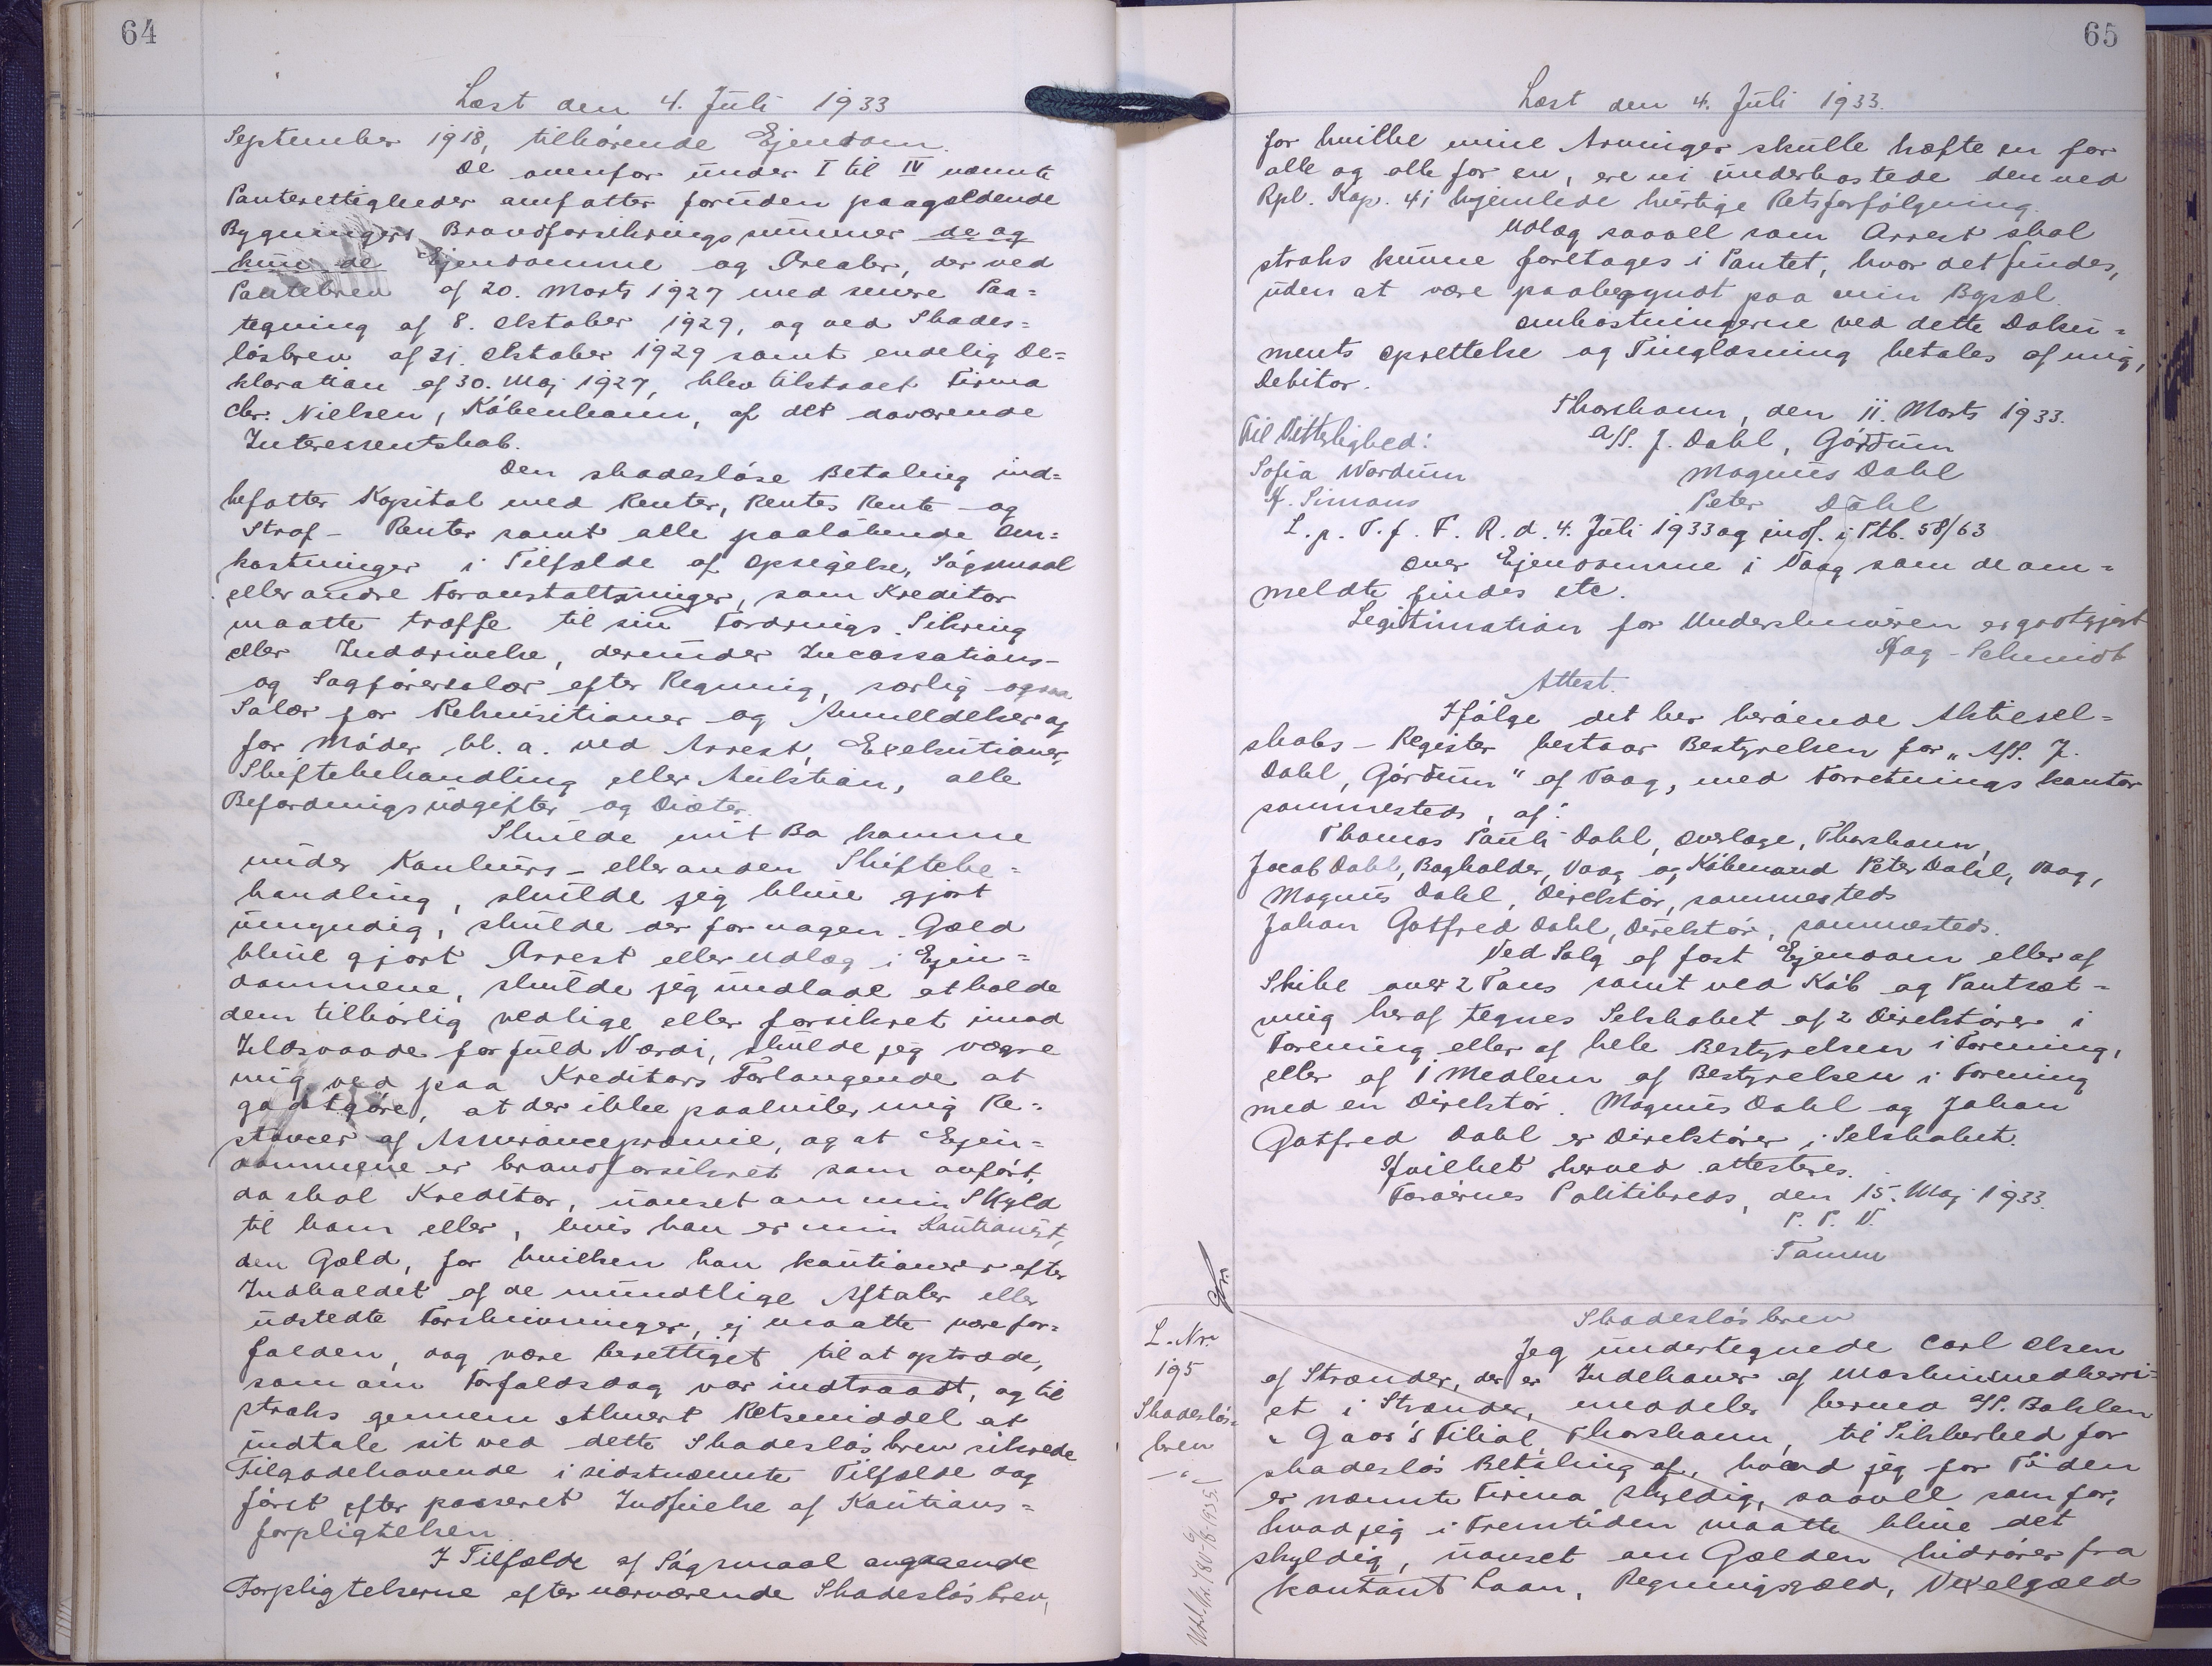 64
Læst den 4. Juli 1933
September 1918, tilhørende Ejendom.
De ovenfor under I til IV nævnte
Panterettigheder omfatter foruden paagældende
Bygningers Brandforsikringssummer de og
kun de Ejendomme og Arealer, der ved
Pantebrev af 20. Marts 1927 med senere Paa=
tegning af 8. Oktober 1929, og ved Skades=
løsbrev af 31. Oktober 1929 samt endelig De=
klaration af 30. Maj 1927, blev tilstaaet Firma
Chr. Nielsen, København, af det daværende
Interessentskab.
Den skadesløse Betaling ind=
befatter Kapital med Renter, Rentes Rente og
Straf- Renter samt alle paaløbende Om=
kostninger i Tilfælde af Opsigelse, Søgsmaal
eller andre Foranstaltninger, som Kreditor
maatte træffe til sin Fordrings Sikring
eller Inddrivelse, derunder Incassations-
og Sagførersalær efter Regning, særlig ogsaa
Salær for Rekvisitioner og Anmeldelser og
for Møder bl. a. ved Arrest, Exekutioner,
Skiftebehandling eller Auktion, alle
Befordringsudgifter og Diæter.
Skulde mit Bo komme
under Konkurs- eller anden Skiftebe=
handling, skulde jeg blive gjort
umyndig, skulde der for nogen Gæld
blive gjort Arrest eller Udlæg i Ejen=
dommene, skulde jeg undlade at holde
dem tilbørlig vedlige eller forsikret imod
Ildsvaade for fuld Værdi, skulde jeg vægre
mig ved paa Kreditors Forlangende at
godtgøre, at der ikke paahviler mig Re=
stancer af Assurancepræmie, og at Ejen=
dommene er brandforsikret som anført,
da skal Kreditor, uanset om min Skyld
til ham eller, hvis han er min Kautionist,
den Gæld, for hvilken han kautionerer efter
Indholdet af de mundtlige Aftaler eller
udstedte Forskrivninger, ej maatte være for=
falden, dog være berettiget til at optræde,
som om Forfaldsdag var indtraadt, og til
straks gennem ethvert Retsmiddel at
indtale sit ved dette Skadesløsbrev sikrede
Tilgodehavende i sidstnævnte Tilfælde dog
først efter passeret Indfrielse af Kautions=
forpligtelsen.
I Tilfælde af Søgsmaal angaaende
Forpligtelserne efter nærværende Skadesløsbrev,
65
Læst den 4. Juli 1933.
for hvilke mine Arvinger skulle hæfte en for
alle og alle for en, ere vi underkastede den ved
Rpl. Kap. 41 hjemlede hurtige Retsforfølgning.
Udlæg saavel som Arrest skal
straks kunne foretages i Pantet, hvor det findes,
uden at være paabegyndt paa min Bopæl.
Omkostningerne ved dette Doku=
ments Oprettelse og Tinglæsning betales af mig,
Debitor.
Thorshavn, den 11. Marts 1933.
Til Vitterlighed:
A/S. J. Dahl, Gørdum
Sofia Wardum
Magnus Dahl
H. Simans
Peter Dahl
L. p. T. f. F. R. d. 4. Juli 1933 og indf. i Ptb. 58/63
over Ejendomme i Vaag som de om=
meldte findes etc.
Legitimation for Underskriveren er godtgjort
Hag-Schmidt
Attest.
Ifølge det her beroende Aktiesel=
skabs- Register bestaar Bestyrelsen for "A/S. J.
Dahl, Gørdum" af Vaag, med Forretningskontor
sammesteds, af:
Thomas Pauli Dahl, Overlæge, Thorshavn,
Jacob Dahl, Bogholder, Vaag og Købmand Peter Dahl, Vaag,
Magnus Dahl, Direktør, sammesteds
Johan Gotfred Dahl, Direktør, sammesteds.
Ved Salg af fast Ejendom eller af
Skibe over 2 Tons samt ved Køb og Pantsæt=
ning heraf tegnes Selskabet af 2 Direktører i
Forening eller af hele Bestyrelsen i Forening,
eller af 1 Medlem af Bestyrelsen i Forening
med en Direktør. Magnus Dahl og Johan
Gotfred Dahl er Direktører i Selskabet.
Hvilket herved attesteres.
Færøernes Politikreds, den 15. Maj 1933.
P. P. V.
Tamm
L. Nr.
195
Skadesløs=
brev
Skadesløsbrev
Jeg undertegnede Carl Olsen
af Strænder, der er Indehaver af Maskinsnedkeri=
et i Strænder, meddeler herved A/S. Bohlen
Filial, Thorshavn, til Sikkerhed for
skadesløs Betaling af, hvad jeg for Tiden
er nævnte Firma skyldig, saavel som for,
hvad jeg i Fremtiden maatte blive det
skyldig, uanset om Gælden hidrører fra
kontant Laan, Regningsgæld, Vexelgæld